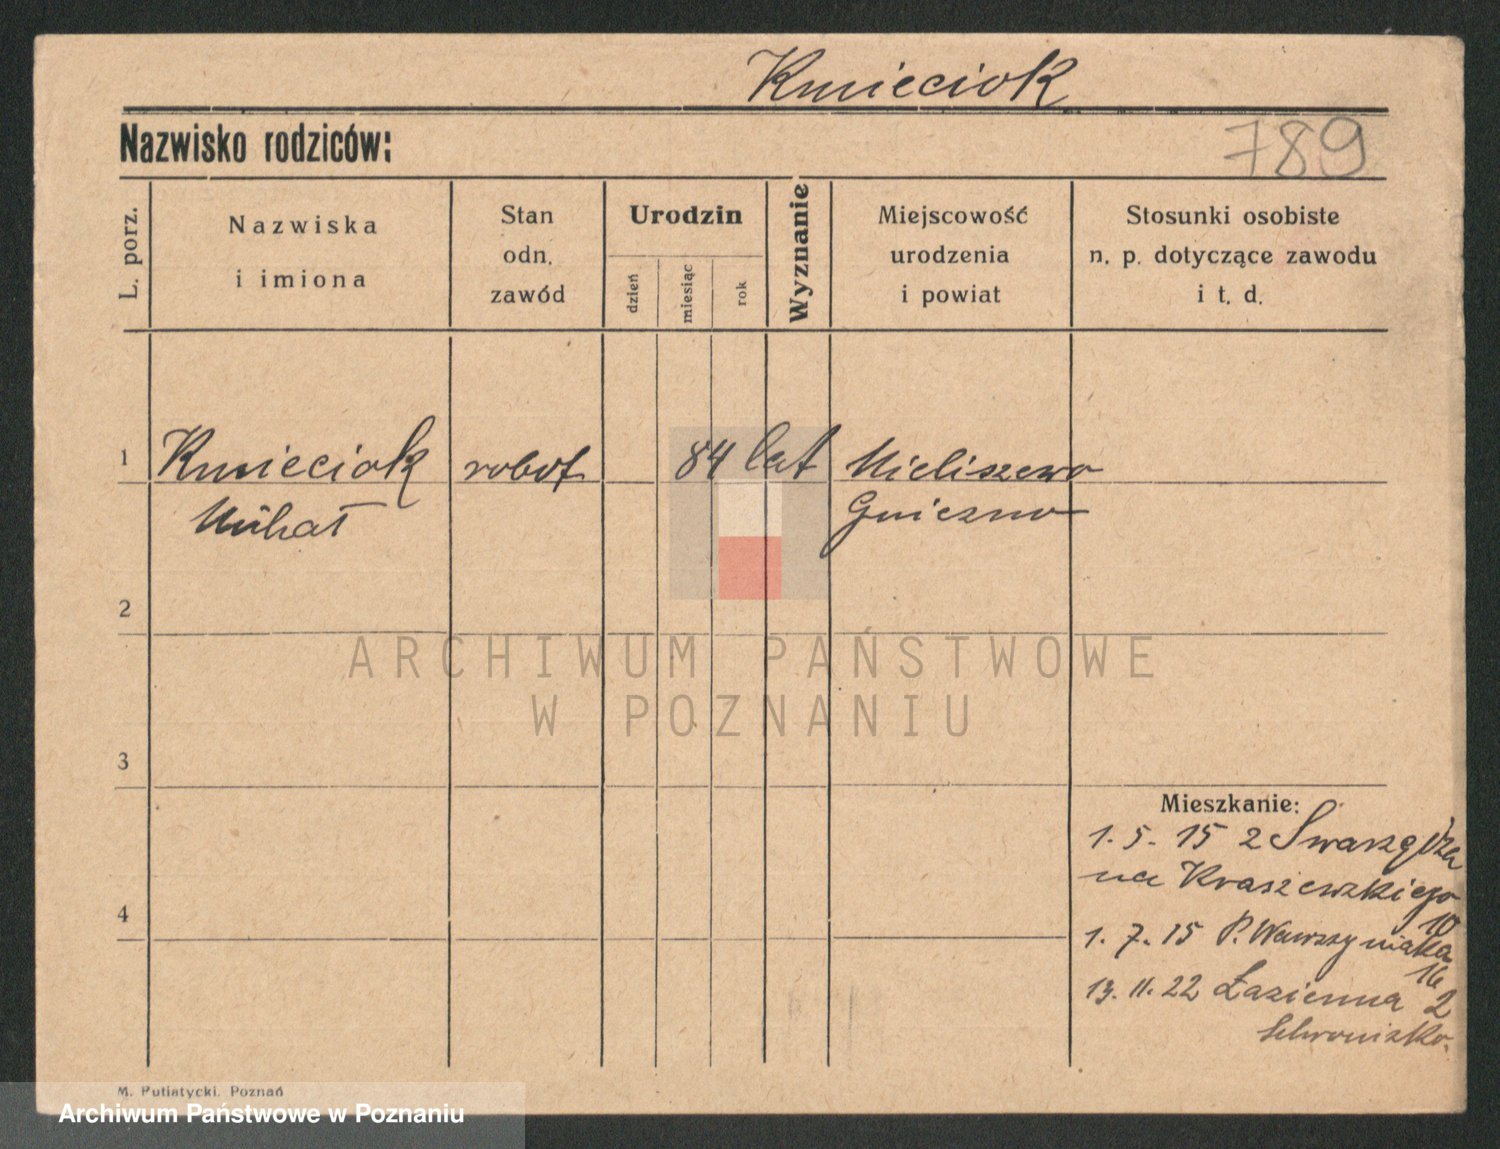 Kmieciok
Nazwisko rodziców:
789
L. porz.
Nazwiska
i imiona
Stan
odn.
zawód
Urodzin
dzień
miesiąc
rok
Wyznanie
Miejscowość
urodzenia
i powiat
Stosunki osobiste
n. p. dotyczące zawodu
i t. d.
1 Kmieciok robot 84 lat Mieliszewo
Michał Gniezno
2
ARCHIWUM PAŃSTWOWE
W POZNANIU
3
Mieszkanie:
1. 5. 15 z Swarzędza
na Kraszewskiego
10
4
1. 7. 15 P. Wawrzyniaka
16
13. 11. 22 Łazienna 2
Schronisko.
M. Putiatycki, Poznań
Archiwum Państwowe w Poznaniu